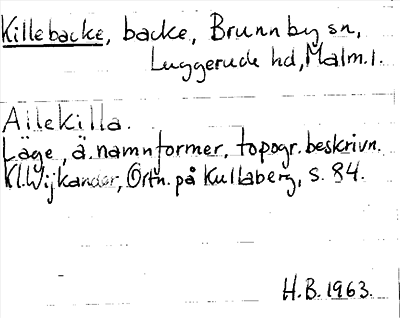 Killebacke, backe, Brunnby sn,
Luggerude hd, Malm. l.
Ailekilla.
Läge, ä. namnformer, topogr. beskrivn.
Kl. Wijkander, Ortn. på Kullaberg, s. 84.
H.B. 1963.